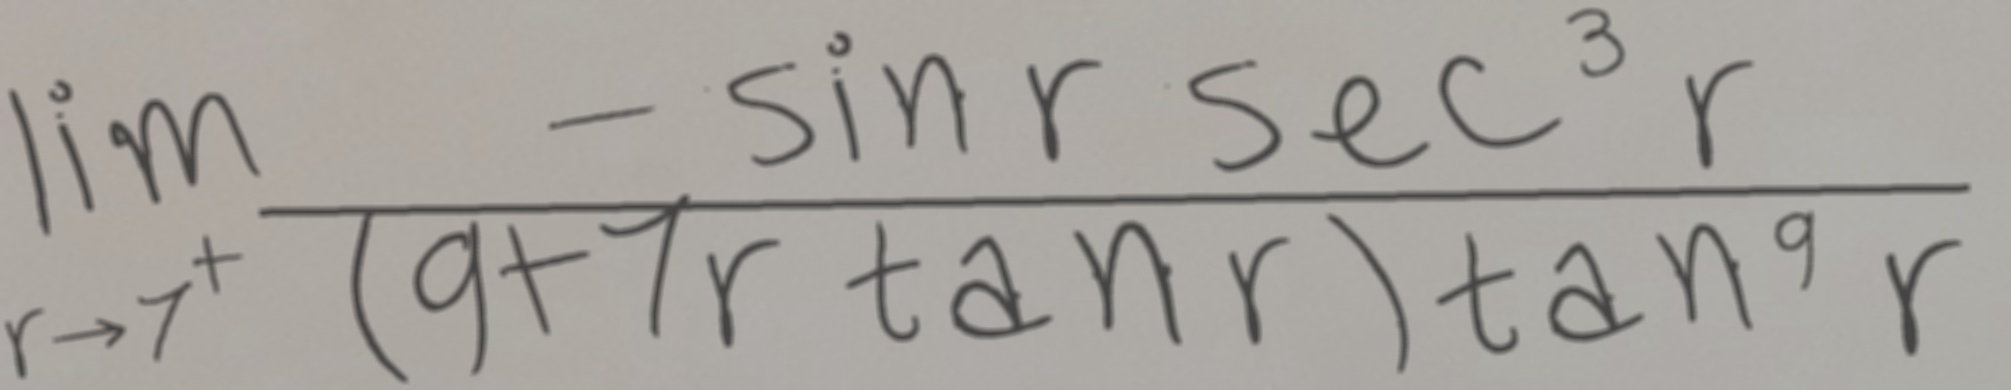 \lim_{r \to 7^+} \frac{-\sin r \sec^3 r}{(9+7r \tan r) \tan^9 r}